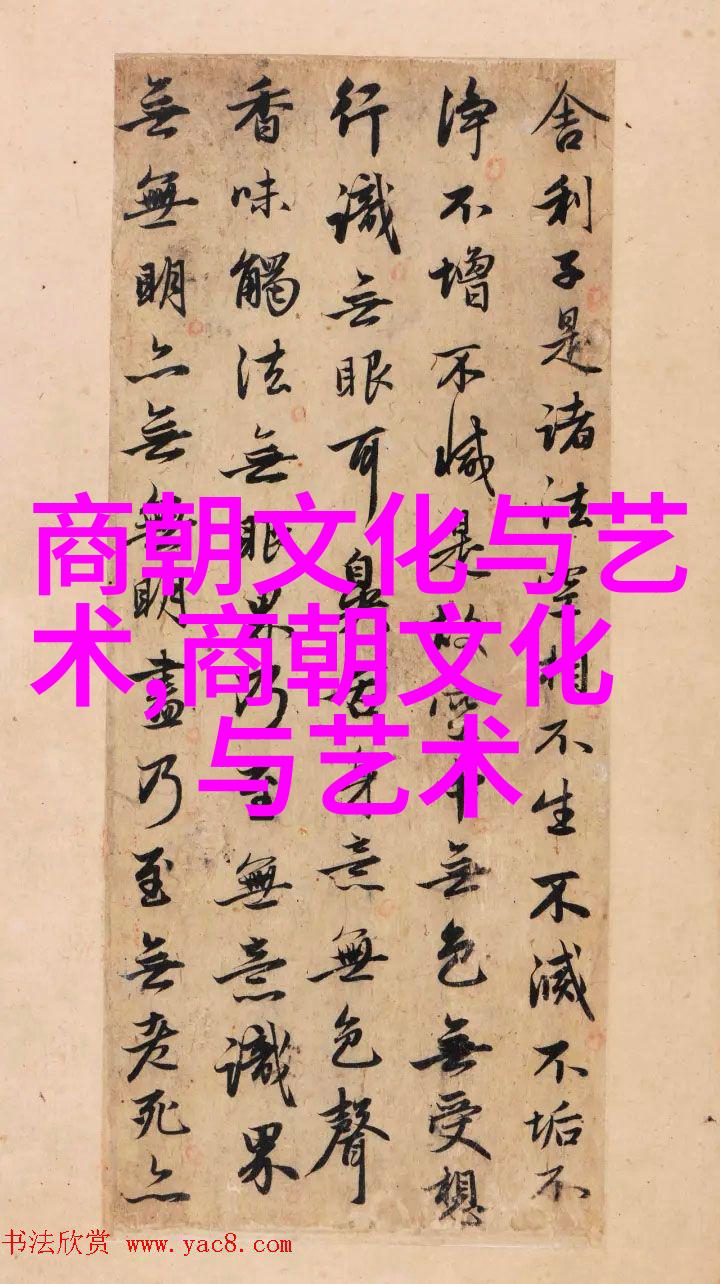 舍利子是諸法空相不生不滅不垢不
淨不增不減是故空中無色無受想
行識無眼耳鼻舌身意無色聲
香味觸法無眼界乃至無意識界
無無明亦無無明盡乃至無老死亦
商朝文化与艺
术,商朝文化
与艺术
书法欣赏 www.yac8.com